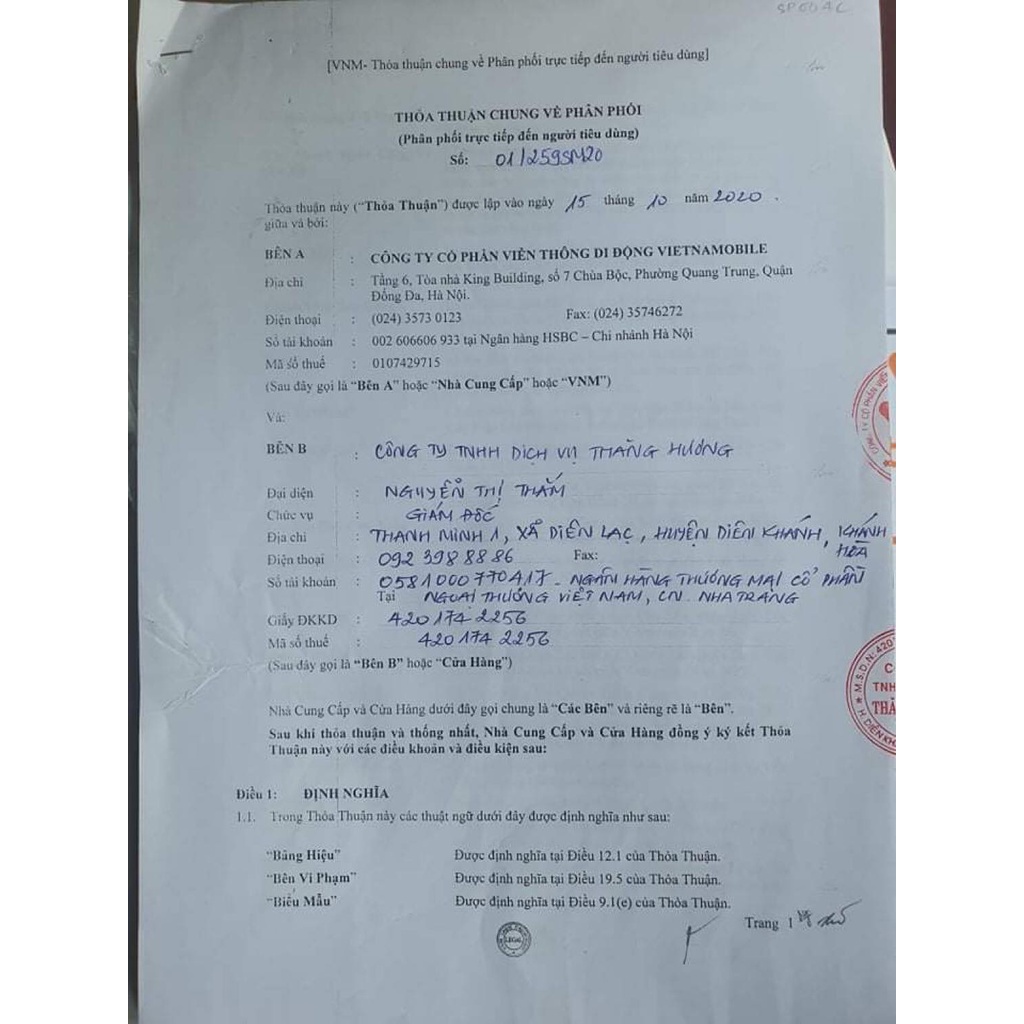 [VNM- Thỏa thuận chung về Phân phối trực tiếp đến người tiêu dùng]
THỎA THUẬN CHUNG VỀ PHÂN PHỐI
(Phân phối trực tiếp đến người tiêu dùng)
Số: 01/259SM20
Thỏa thuận này (“Thỏa Thuận”) được lập vào ngày 15 tháng 10 năm 2020.
giữa và bởi:
BÊN A : CÔNG TY CỔ PHẦN VIỄN THÔNG DI ĐỘNG VIETNAMOBILE
Địa chỉ : Tầng 6, Tòa nhà King Building, số 7 Chùa Bộc, Phường Quang Trung, Quận
Đống Đa, Hà Nội.
Điện thoại : (024) 3573 0123 Fax: (024) 35746272
Số tài khoản : 002 606606 933 tại Ngân hàng HSBC – Chi nhánh Hà Nội
Mã số thuế : 0107429715
(Sau đây gọi là “Bên A” hoặc “Nhà Cung Cấp” hoặc “VNM”)
Và:
BÊN B : CÔNG TY TNHH DỊCH VỤ THẮNG HƯƠNG
Đại diện : NGUYỄN THỊ THẮM
Chức vụ : GIÁM ĐỐC
Địa chỉ : THANH MINH 1, XÃ DIÊN LẠC, HUYỆN DIÊN KHÁNH, KHÁNH
HÒA
Điện thoại : 092 398 8886 Fax:
Số tài khoản : 0581000770417 - NGÂN HÀNG THƯƠNG MẠI CỔ PHẦN
Tại NGOẠI THƯƠNG VIỆT NAM, CN. NHA TRANG
Giấy ĐKKD : 420 174 2256
Mã số thuế : 420 174 2256
(Sau đây gọi là “Bên B” hoặc “Cửa Hàng”)
Nhà Cung Cấp và Cửa Hàng dưới đây gọi chung là “Các Bên” và riêng rẽ là “Bên”.
Sau khi thỏa thuận và thống nhất, Nhà Cung Cấp và Cửa Hàng đồng ý ký kết Thỏa
Thuận này với các điều khoản và điều kiện sau:
Điều 1: ĐỊNH NGHĨA
1.1. Trong Thỏa Thuận này các thuật ngữ dưới đây được định nghĩa như sau:
“Bảng Hiệu” Được định nghĩa tại Điều 12.1 của Thỏa Thuận.
“Bên Vi Phạm” Được định nghĩa tại Điều 19.5 của Thỏa Thuận.
“Biểu Mẫu” Được định nghĩa tại Điều 9.1(e) của Thỏa Thuận.
Trang 1
LEGAL